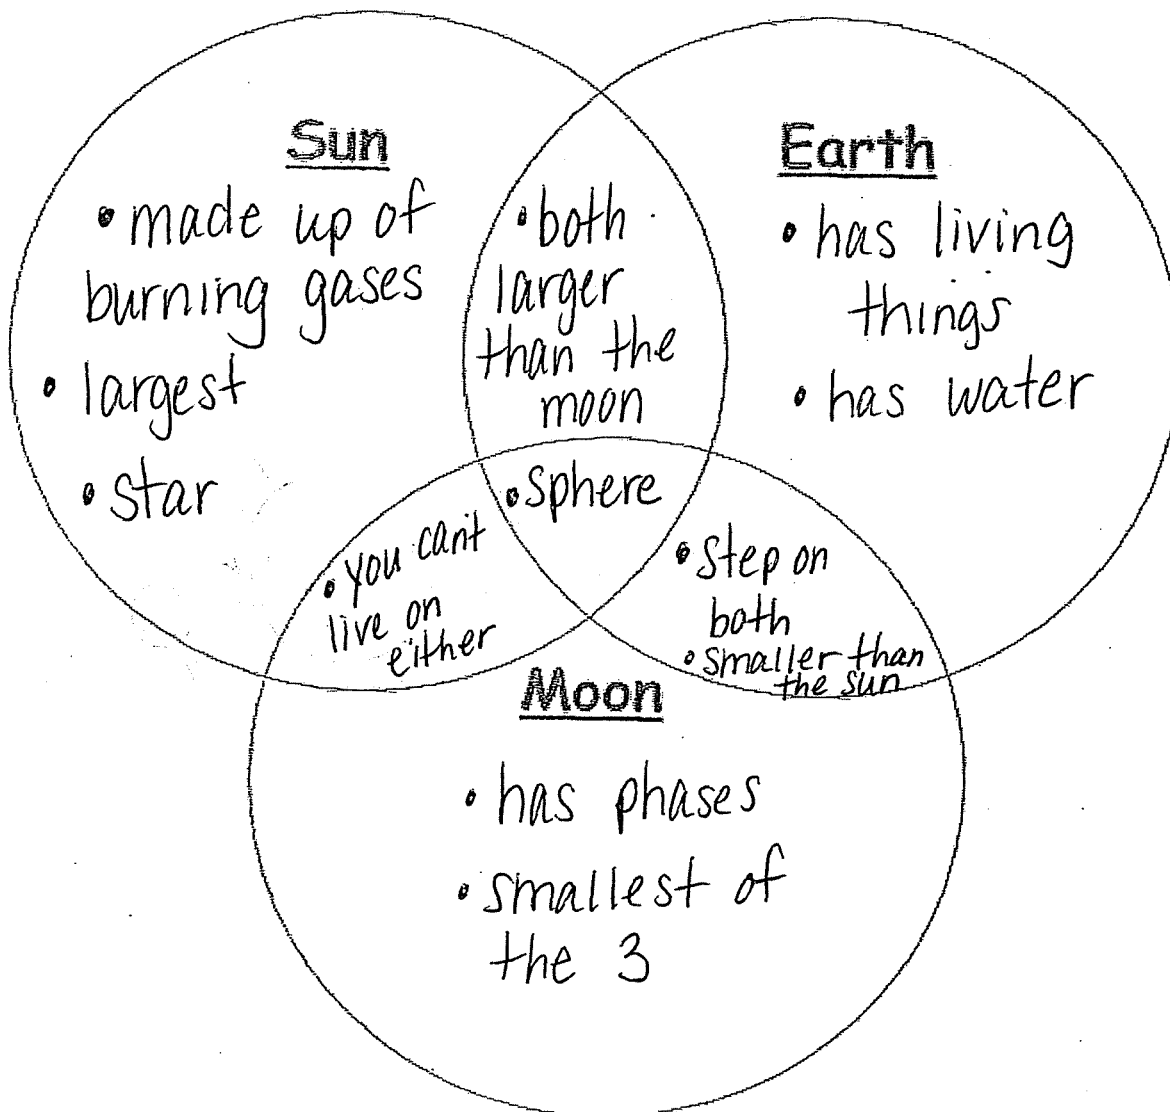 Sun
• made up of
burning gases
• largest
• star
• both
larger
than the
moon
Earth
• has living
things
• has water
• sphere
• you can't
live on
either
• step on
both
• smaller than
the sun
Moon
• has phases
• smallest of
the 3